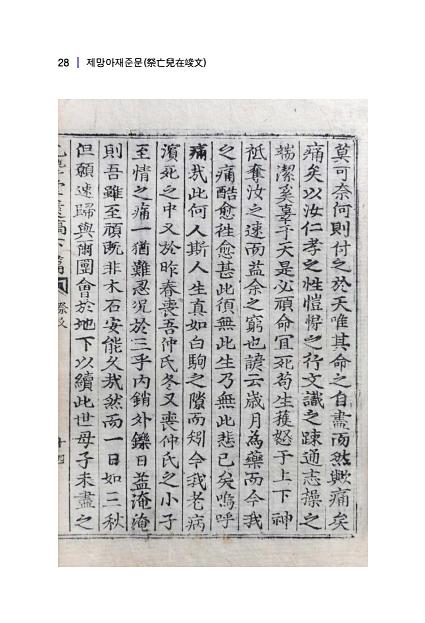 28 | 제망아재준문(祭亡兒在峻文)
莫可奈何則付之於天唯其命之自盡而然歟痛矣
痛矣以汝仁孝之性愷悌之行文識之疎通志操之
端潔奚辜于天是必頑命宜死苟生獲怒于上下神
祇奪汝之速而益余之窮也諺云歲月為藥而今我
之痛酷愈往愈甚此須無此生乃無此悲已矣嗚呼
痛哉此何人斯人生真如白駒之隙而矧令我老病
濱死之中又於昨春喪吾仲氏冬又喪仲氏之小子
至情之痛一猶難忍況於三乎内銷外鑠日益淹淹
則吾雖至頑旣非木石安能久哉然而一日如三秋
但願速歸與爾團會於地下以續此世母子未盡之
祭文
十四